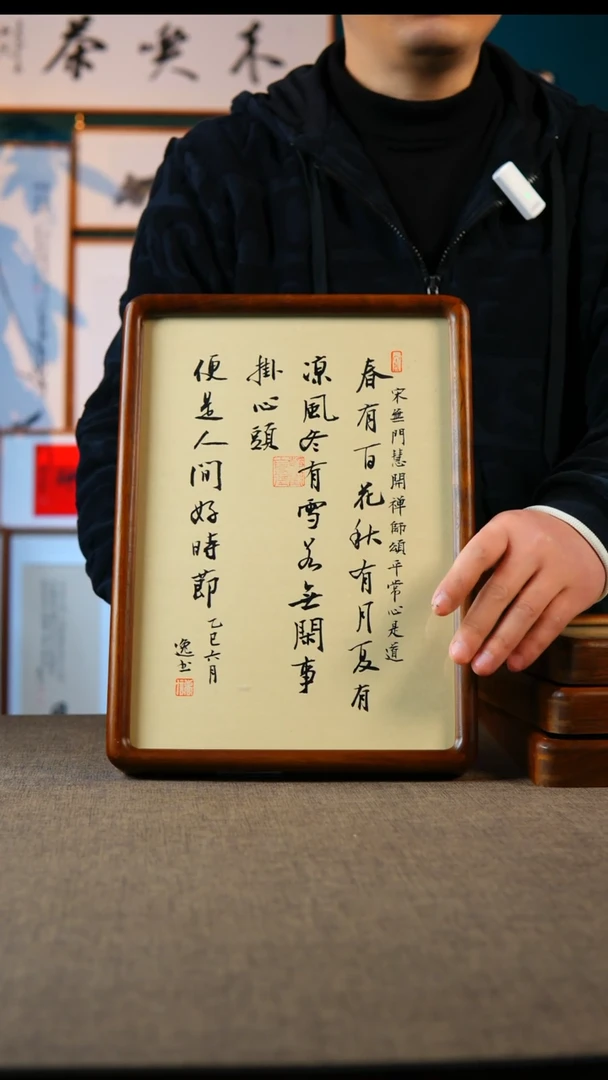 宋無門慧開禅師頌平常心是道
春有百花秋有月夏有
凉風冬有雪若無閑事
掛心頭
便是人间好時節
乙巳六月
逸书
禾喫茶